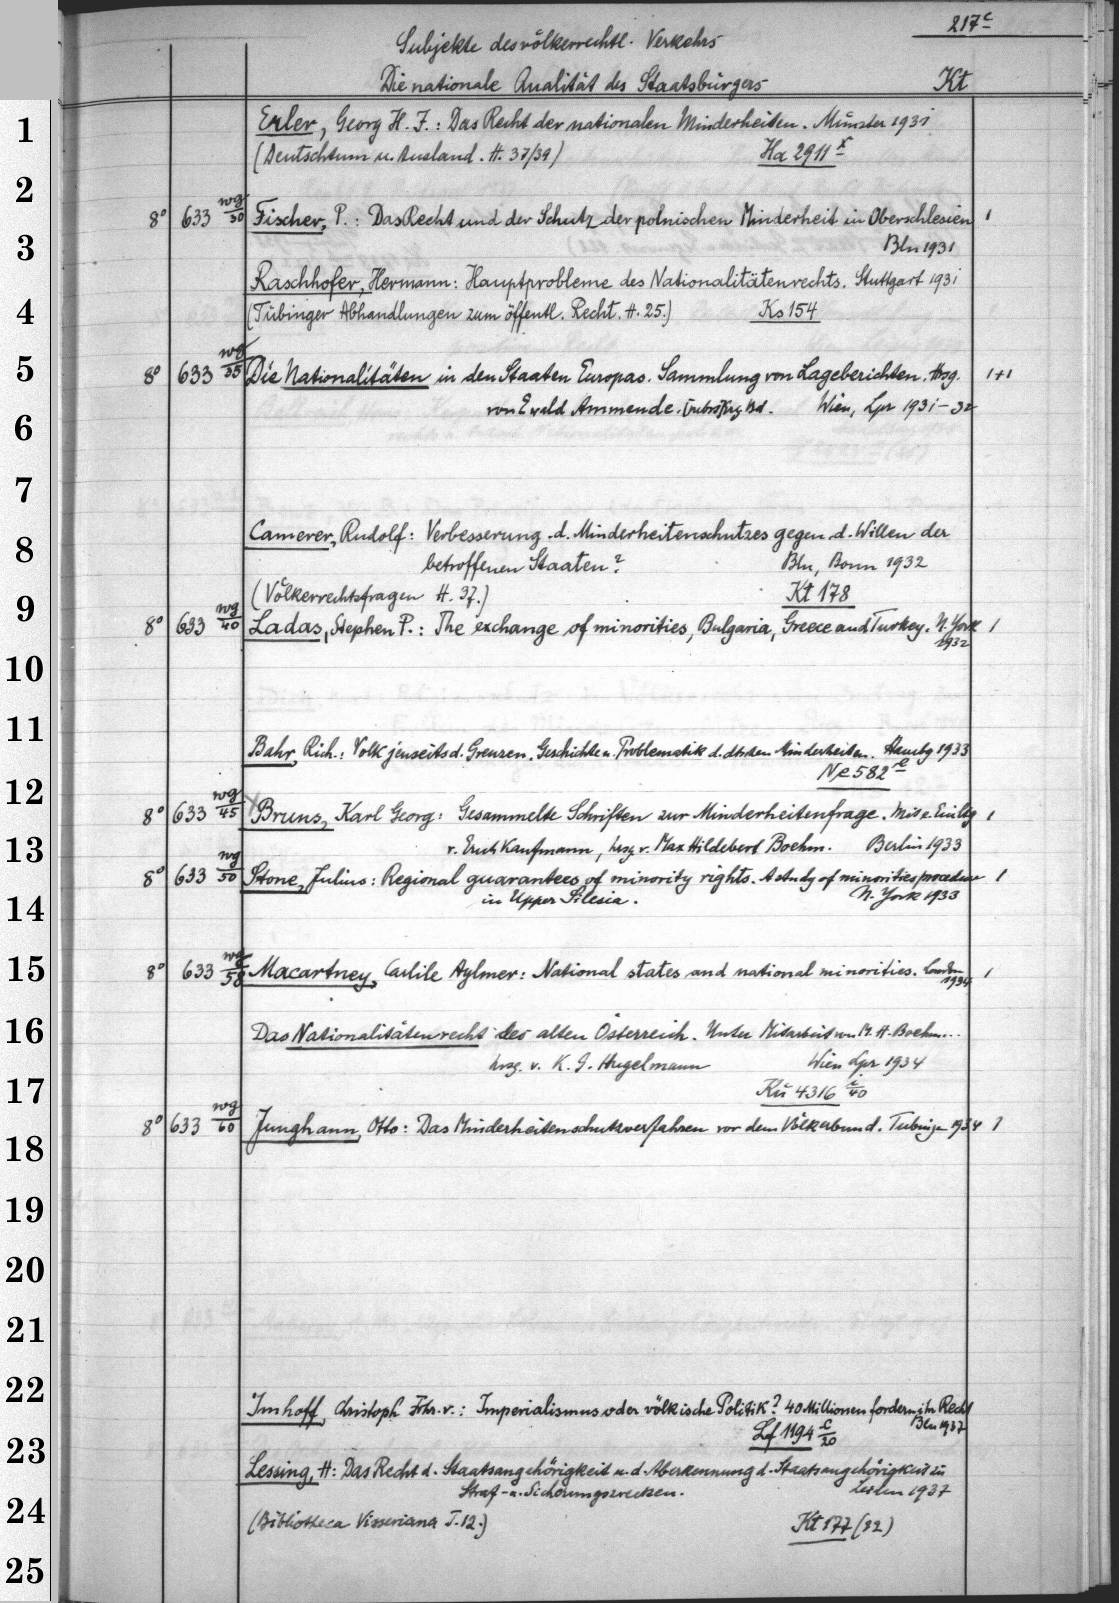 217c
Subjekte des völkerrechtl. Verkehrs
Die nationale Qualität des Staatsbürgers Kt
1
Erler, Georg H. J.: Das Recht der nationalen Minderheiten. Münster 1931
(Deutschtum u. Ausland. H. 37/39) Ha 2911 x
2
8° 633 wg/30 Fischer, P.: Das Recht und der Schutz der polnischen Minderheit in Oberschlesien 1
3
Bln 1931
Raschhofer, Hermann: Hauptprobleme des Nationalitätenrechts. Stuttgart 1931
4
(Tübinger Abhandlungen zum öffentl. Recht. H. 25.) Ks 154
5
8° 633 wg/35 Die Nationalitäten in den Staaten Europas. Sammlung von Lageberichten. Hrsg. 1+1
von Ewald Ammende. Bd. Wien, Lpz 1931-32
6
7
Camerer, Rudolf: Verbesserung d. Minderheitenschutzes gegen d. Willen der
8
betroffenen Staaten? Bln, Bonn 1932
(Völkerrechtsfragen H. 37.) Kt 178
9
8° 633 wg/40 Ladas, Stephen P.: The exchange of minorities, Bulgaria, Greece and Turkey. N. York 1
1932
10
11
Bahr, Rich.: Volk jenseits d. Grenzen. Geschichte u. Problematik d. dtschen Minderheiten. Hambg 1933
Ne 582 e
12
8° 633 wg/45 Bruns, Karl Georg: Gesammelte Schriften zur Minderheitenfrage. Mit e. Einltg 1
13
v. Erich Kaufmann, hrsg. v. Max Hildebert Boehm. Berlin 1933
8° 633 wg/50 Stone, Julius: Regional guarantees of minority rights. A study of minorities procedure 1
in Upper Silesia. N. York 1933
14
15
8° 633 wg/58 Macartney, Carlile Aylmer: National states and national minorities. London 1
1934
16
Das Nationalitätenrecht des alten Österreich. Unter Mitarbeit von M. H. Boehm...
hrsg. v. K. G. Hugelmann Wien Lpz 1934
17
Kü 4316 c/40
8° 633 wg/60 Junghann, Otto: Das Minderheitenschutzverfahren vor dem Völkerbund. Tübingen 1934 1
18
19
20
21
22
Imhoff, Christoph Frhr. v.: Imperialismus oder völkische Politik? 40 Millionen fordern ihr Recht
Bln 1937
Lf 1194 c/20
23
Lessing, H: Das Recht d. Staatsangehörigkeit u. d. Aberkennung d. Staatsangehörigkeit zu
Straf- u. Sicherungszwecken. Leiden 1937
24
(Bibliotheca Visseriana T. 12.) Kt 177 (12)
25